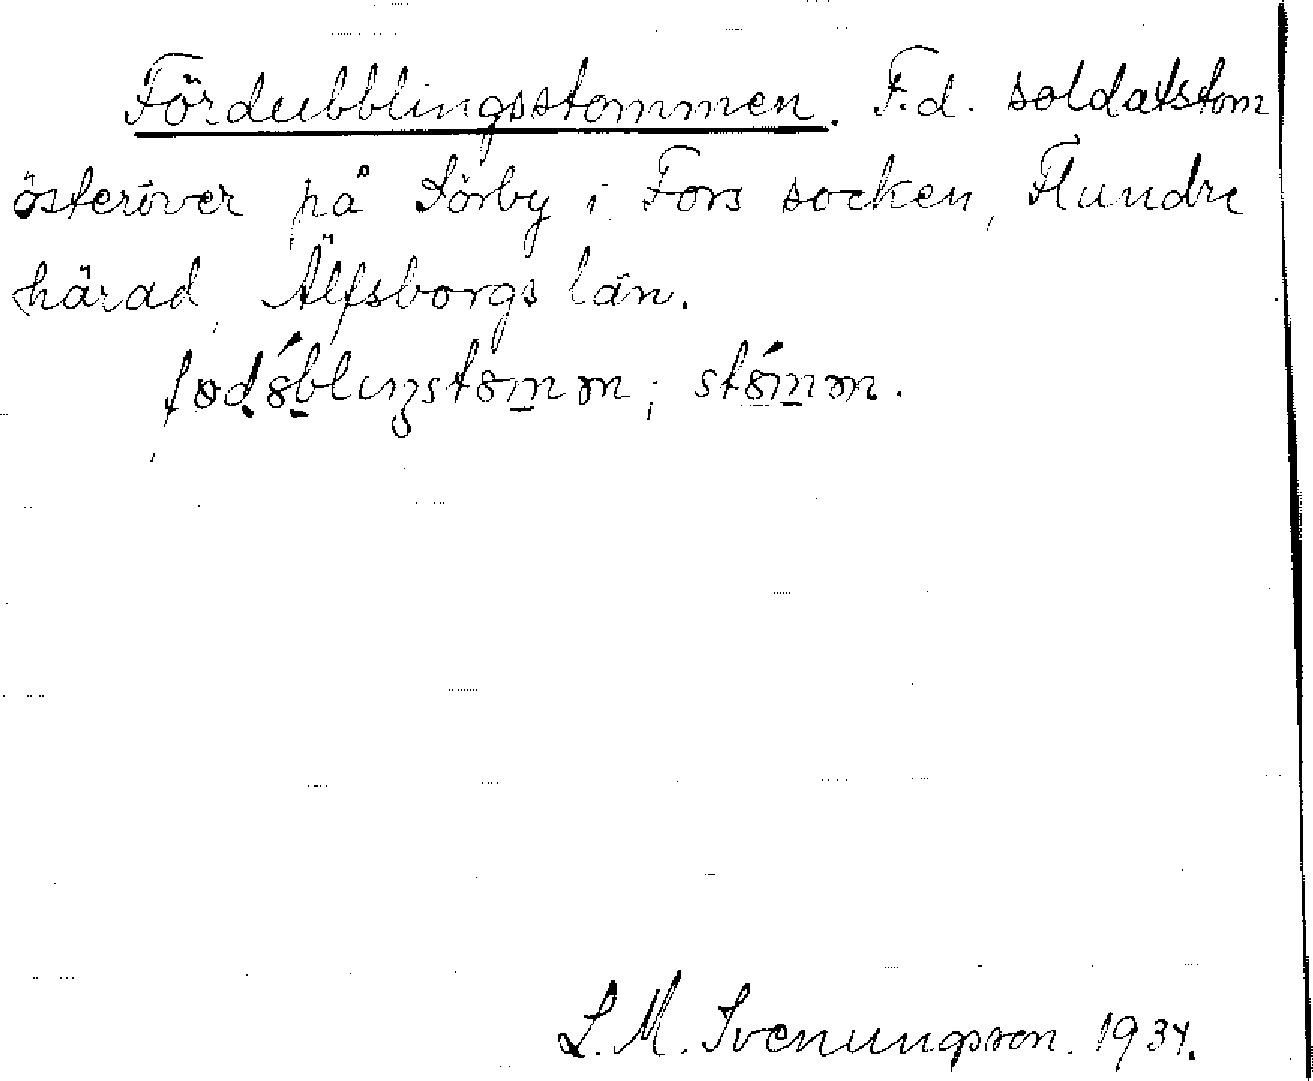 Fördubblingsstommen. F.d. soldatstom
österöver på Sörby i Fors socken, Flundre
härad, Älfsborgs län.
L. M. Svenungsson. 1934.